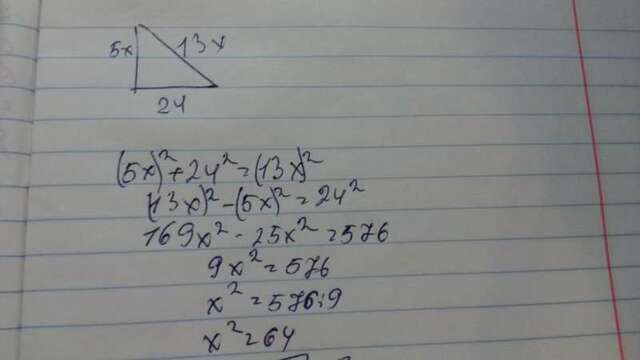 5x 13x
24
(5x)²+24²=(13x)²
(13x)²-(5x)²=24²
169x²-25x²=576
9x²=576
x²=576:9
x²=64